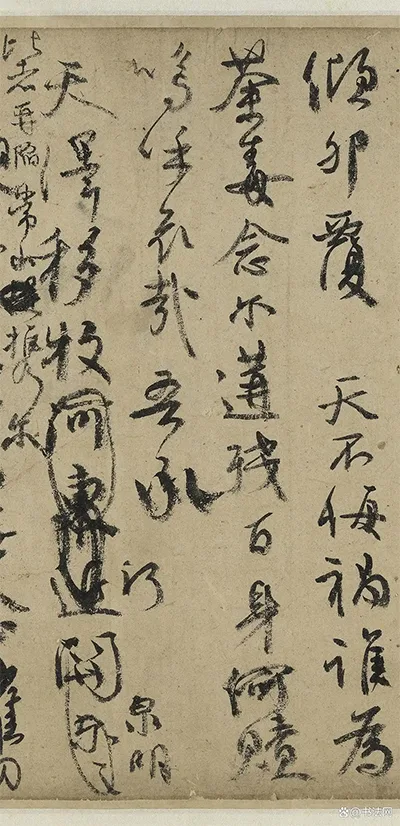 傾卵覆 天不悔禍誰為
荼毒念爾遘殘百身何贖
嗚呼哀哉吾承 泉明
天澤移牧河東近關
比者再陷常山攜爾
@书法网